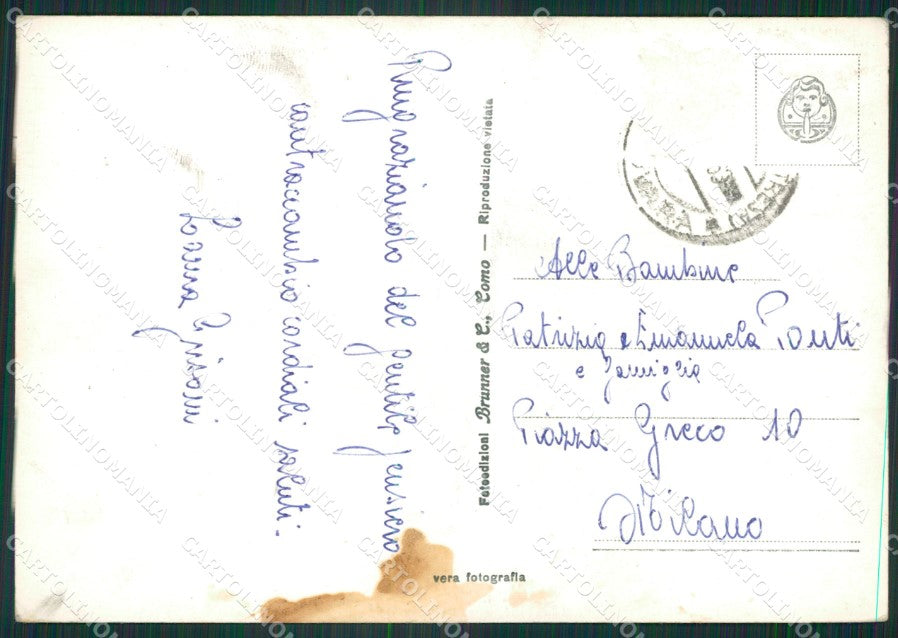 Ringraziando del gentile pensiero
contraccambio cordiali saluti.
Fotoedizioni Brunner & C., Como — Riproduzione vietata
vera fotografia
Alle Bambine
Patrizia e Emanuela Ponti
e famiglia
Piazza Greco 10
Milano
CARTOLINOMANIA